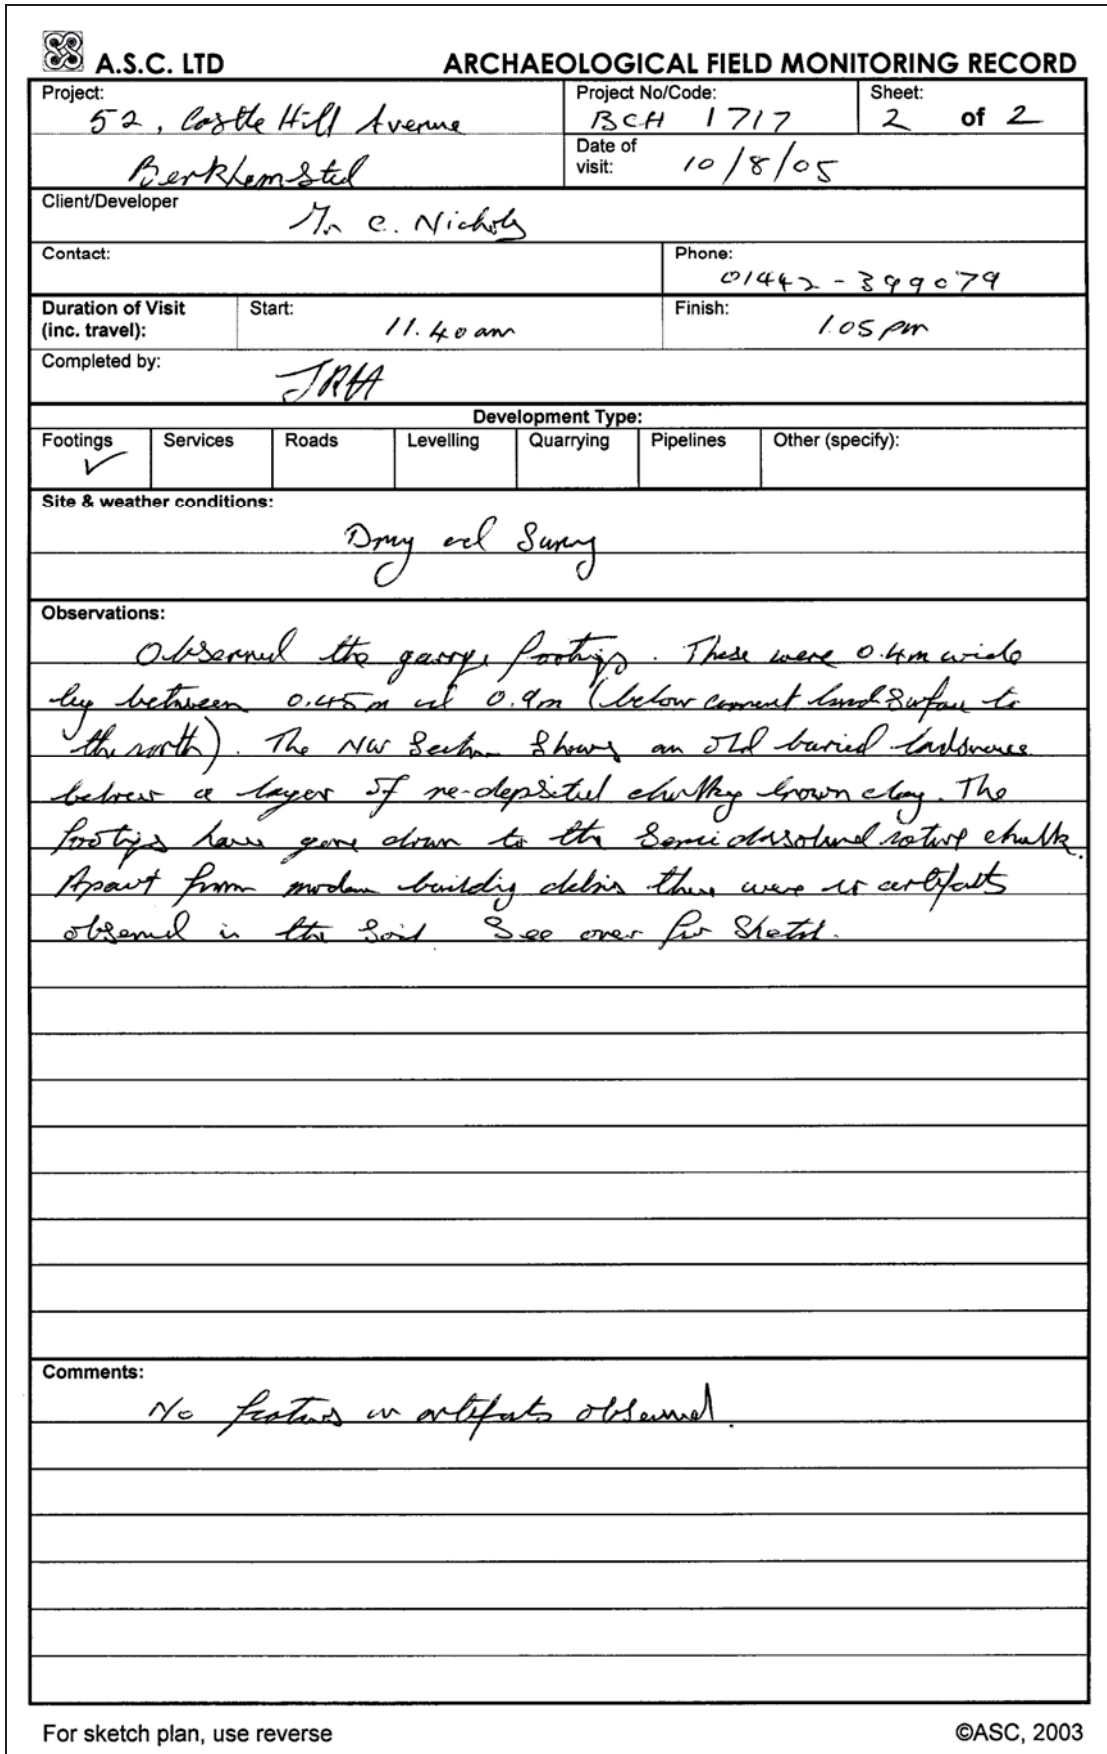 A.S.C. LTD
ARCHAEOLOGICAL FIELD MONITORING RECORD
Project:
52, Castle Hill Avenue
Berkhamsted
Project No/Code:
BCH 1717
Sheet:
2 of 2
Date of
visit:
10/8/05
Client/Developer
Mr C. Nichols
Contact:
Phone:
01442-399079
Duration of Visit
(inc. travel):
Start:
11.40am
Finish:
1.05pm
Completed by:
Development Type:
Footings
Services
Roads
Levelling
Quarrying
Pipelines
Other (specify):
Site & weather conditions:
Dry and Sunny
Observations:
Observed the garage footings. These were 0.4m wide
by between 0.45m and 0.9m (below current land Surface to
the north). The NW Section Shows an old buried
below a layer of re-deposited chalky brown clay. The
footings have gone down to the Semi dissolved native chalk.
Apart from modern building debris there were no artifacts
observed in the Soil. See over for Sketch.
Comments:
No features or artifacts observed.
For sketch plan, use reverse
©ASC, 2003